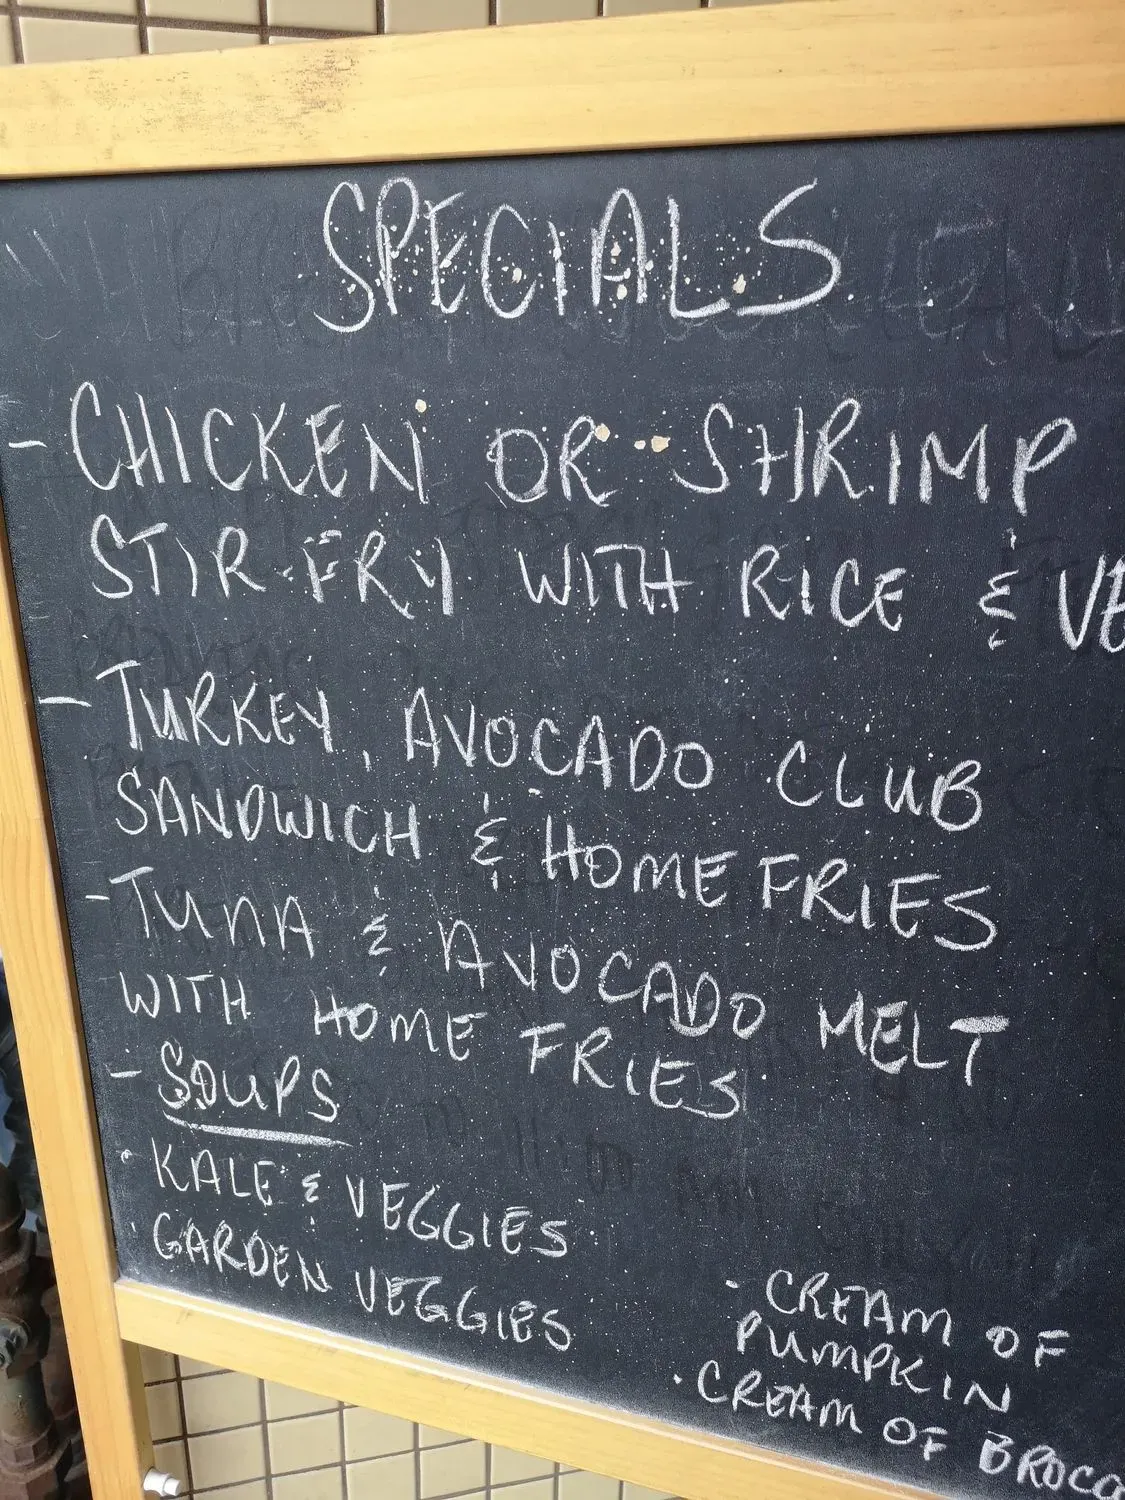 SPECIALS
- CHICKEN OR SHRIMP
STIR-FRY WITH RICE & VE
- TURKEY, AVOCADO CLUB
SANDWICH & HOME FRIES
- TUNA & AVOCADO MELT
WITH HOME FRIES
- SOUPS
· KALE & VEGGIES
· GARDEN VEGGIES
· CREAM OF
PUMPKIN
· CREAM OF BROCC